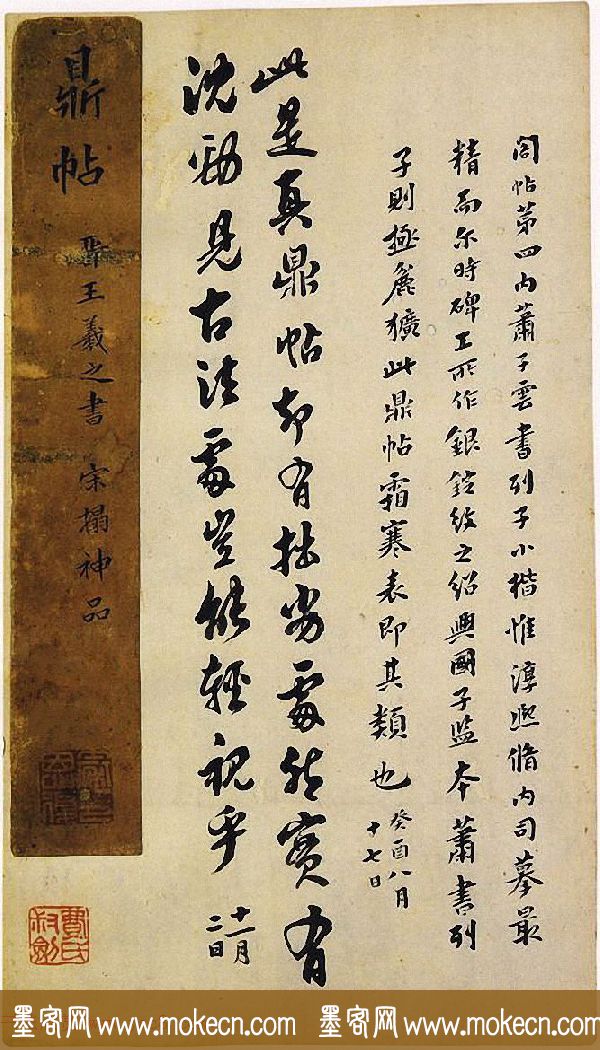 閣帖第四內蕭子雲書列子小楷惟淳熙脩內司摹最
精而尓時碑工所作銀錠紋之紹興國子監本蕭書列
子則極麄獷此鼎帖霜寒表即其類也
癸酉八月
十七日
此是真鼎帖却有拙劣處然實有
沈勁見古法處豈能輕視乎
十一月
二日
鼎帖
王羲之書 宋搨神品
費氏
墨客网 www.mokecn.com 墨客网 www.mokecn.com